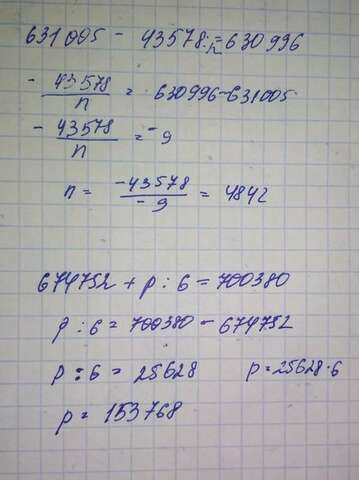 631005 - 43578:n=630996
- 43578/n = 630996-631005
- 43578/n = -9
n = -43578/-9 = 4842
674752 + p : 6 = 700380
p : 6 = 700380 - 674752
p : 6 = 25628 p = 25628·6
p = 153768